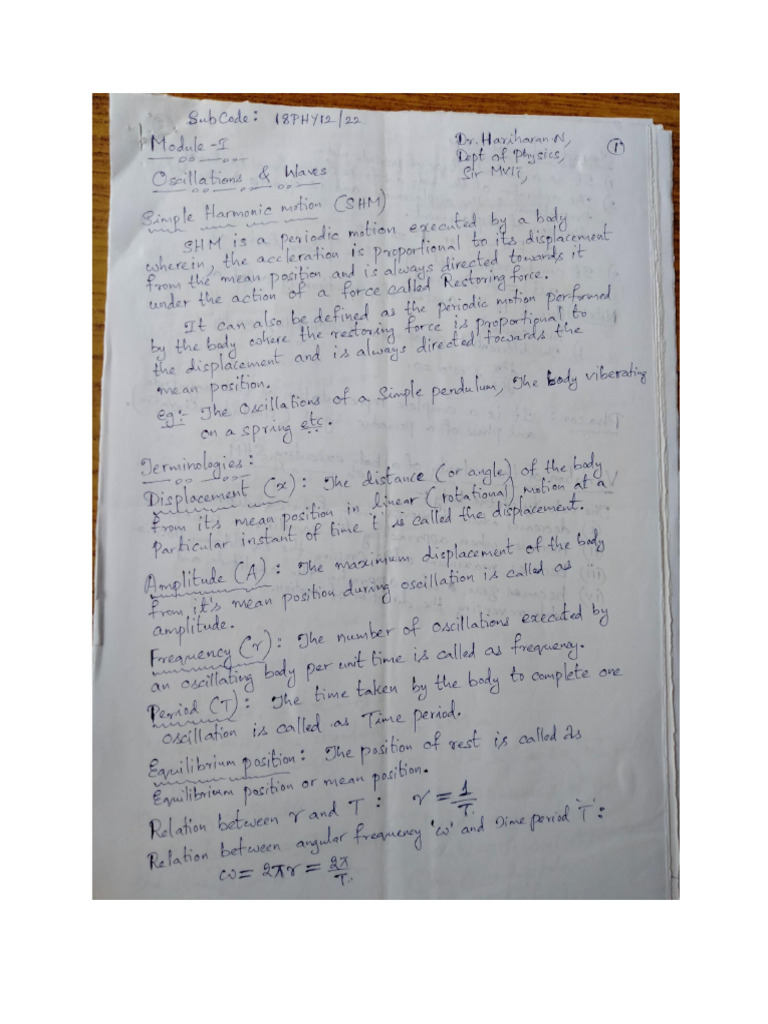 Sub Code: 18PHY12/22
Module-I
Dr. Hariharan.N,
Dept of Physics,
Sir MVIT,
1
Oscillations & Waves
Simple Harmonic motion (SHM)
SHM is a periodic motion executed by a body
wherein, the accleration is proportional to its displacement
from the mean position and is always directed towards it
under the action of a force called Restoring force.
It can also be defined as the periodic motion performed
by the body where the restoring force is proportional to
the displacement and is always directed towards the
mean position.
eg:- The Oscillations of a Simple pendulum, The body viberating
on a spring etc.
Terminologies:
Displacement (x): The distance (or angle) of the body
from its mean position in linear (rotational) motion at a
particular instant of time 't' is called the displacement.
Amplitude (A): The maximum displacement of the body
from it's mean position during oscillation is called as
amplitude.
Frequency (ν): The number of oscillations executed by
an oscillating body per unit time is called as frequency.
Period (T): The time taken by the body to complete one
oscillation is called as Time period.
Equilibrium position: The position of rest is called as
Equilibrium position or mean position.
Relation between ν and T: ν = 1/T.
Relation between angular frequency 'ω' and Time period 'T':
ω = 2πν = 2π/T.